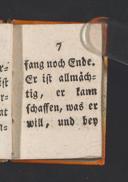 7
fang noch Ende.
Er iſt allmäch-
tig, er kann
ſchaffen, was er
will, und bey